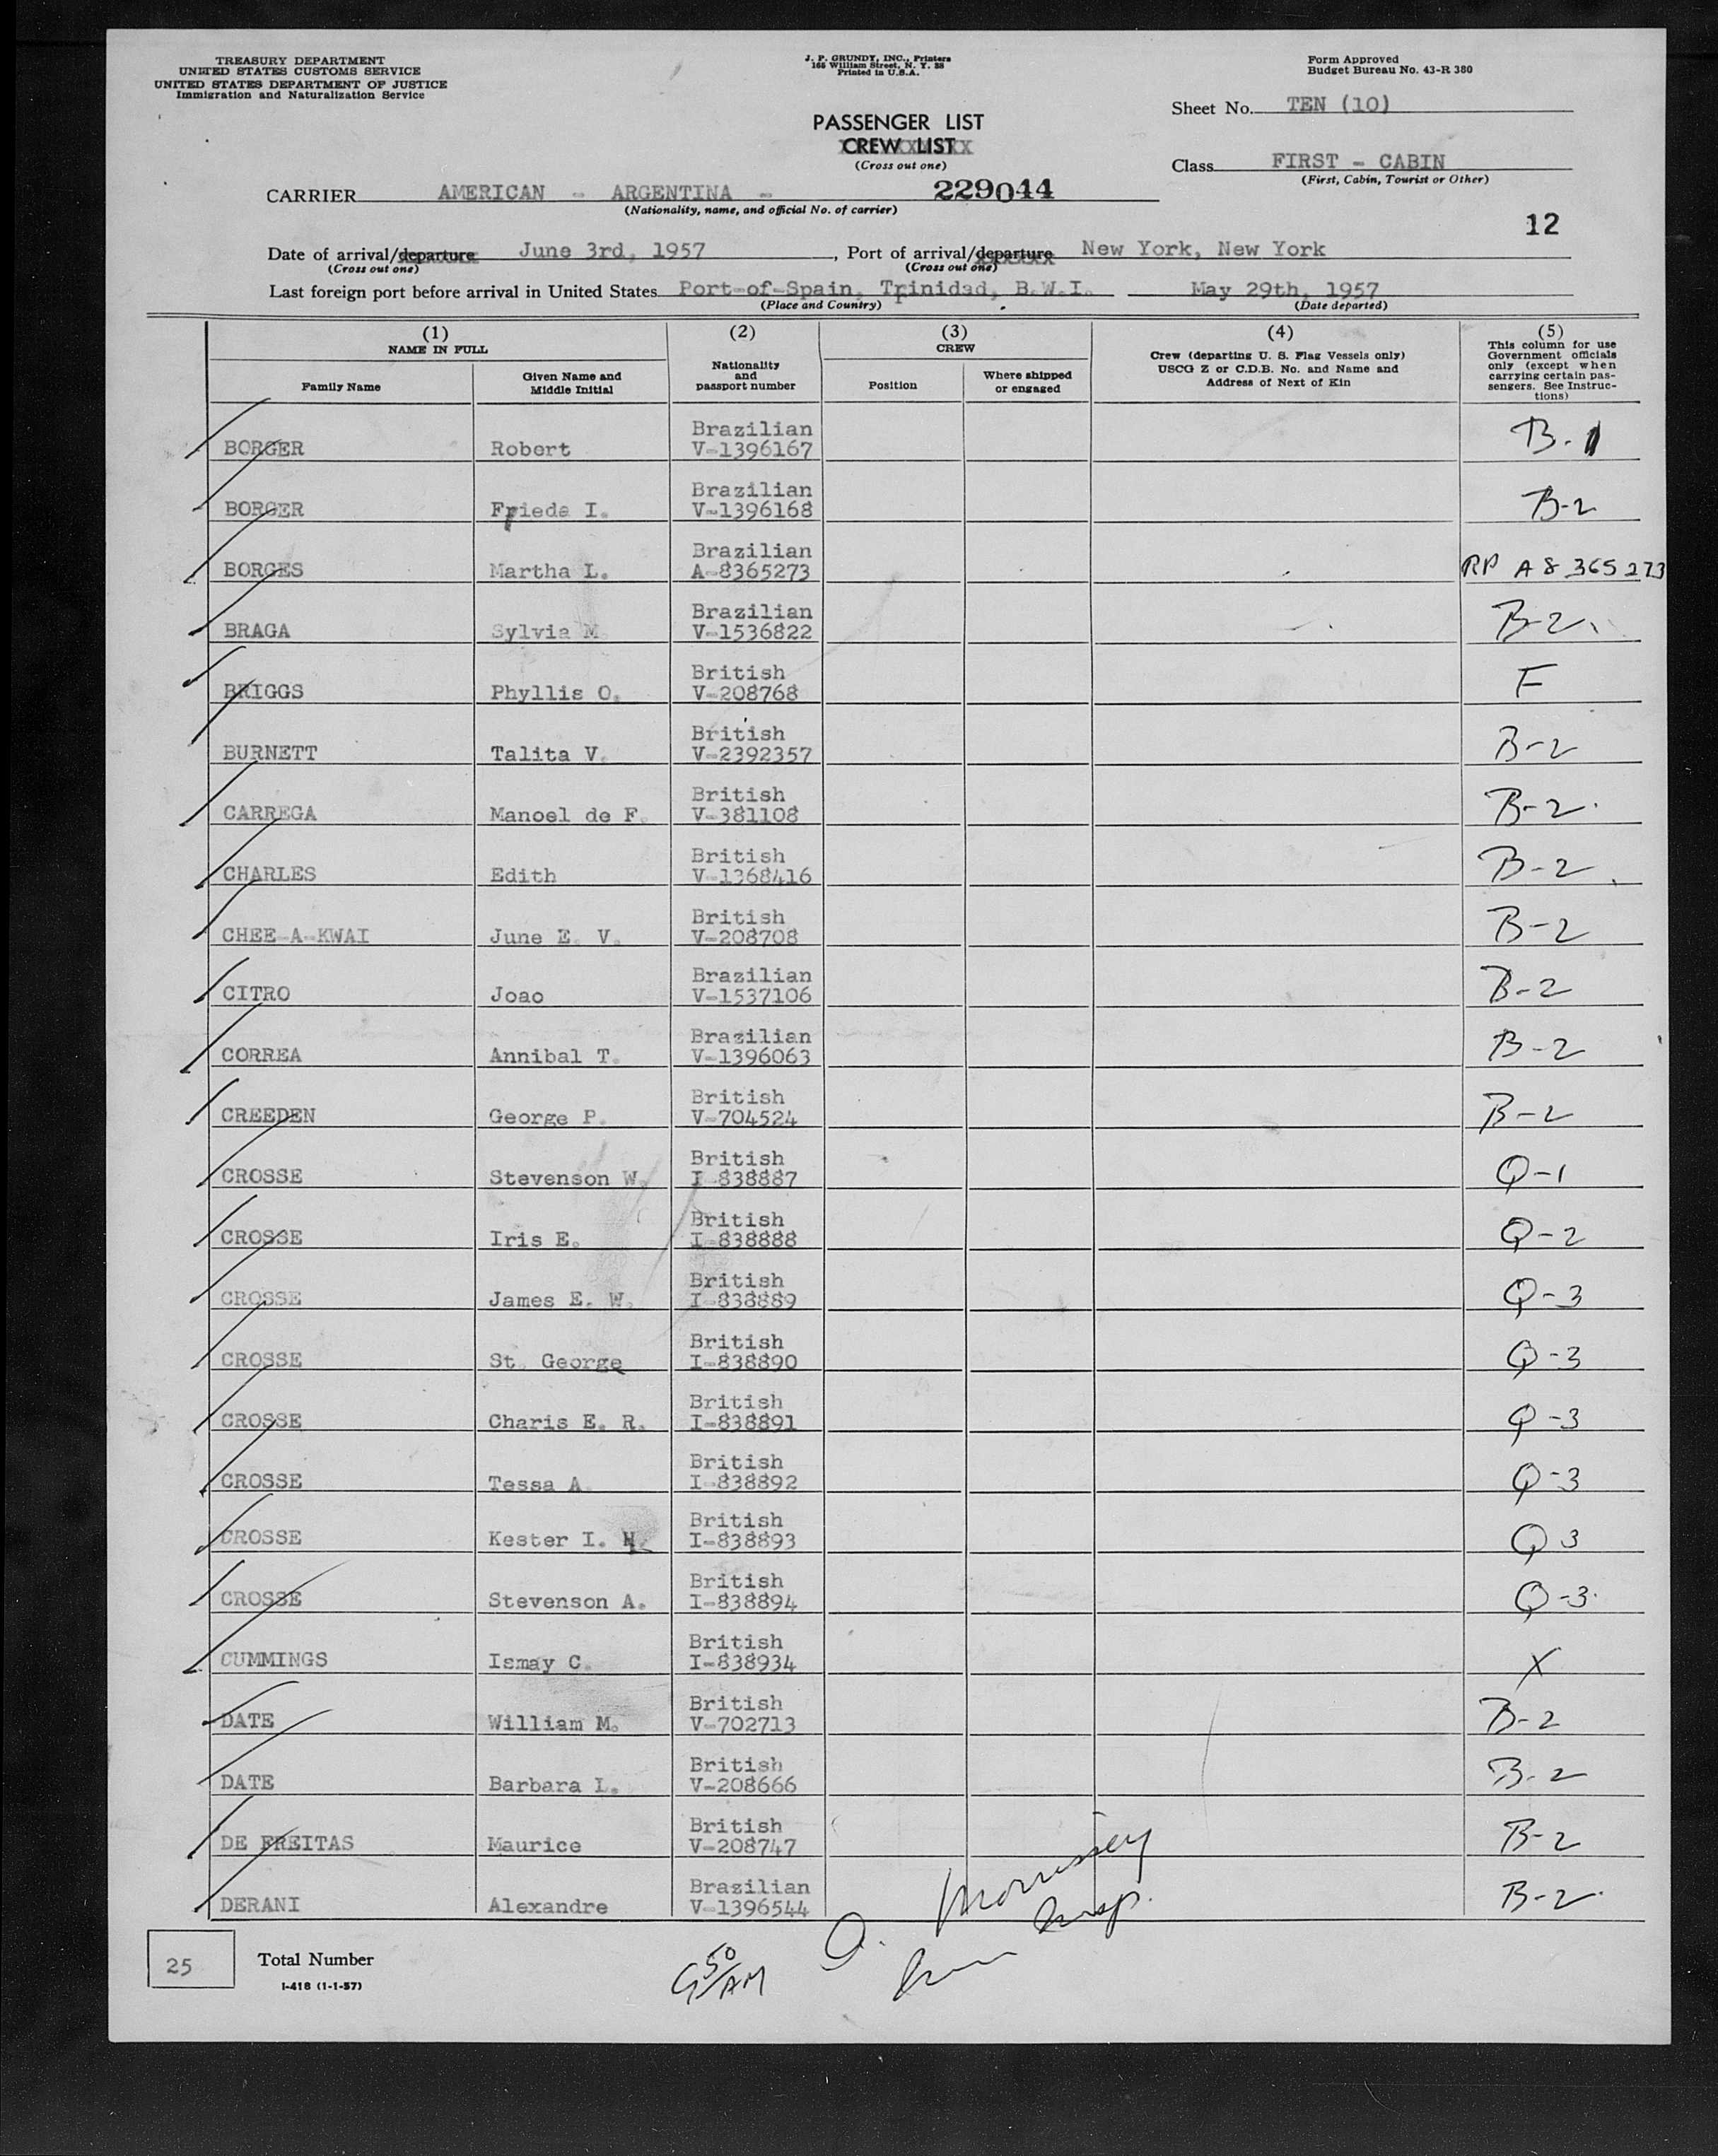 TREASURY DEPARTMENT
UNITED STATES CUSTOMS SERVICE
UNITED STATES DEPARTMENT OF JUSTICE
Immigration and Naturalization Service
J. P. GRUNDY, INC., Printers
165 William Street, N. Y. 38
Printed in U.S.A.
Form Approved
Budget Bureau No. 43-R 380
Sheet No. TEN (10)
PASSENGER LIST
CREW LIST
(Cross out one)
Class FIRST - CABIN
(First, Cabin, Tourist or Other)
CARRIER AMERICAN - ARGENTINA - 229044
(Nationality, name, and official No. of carrier)
12
Date of arrival/departure June 3rd, 1957, Port of arrival/departure New York, New York
(Cross out one) (Cross out one)
Last foreign port before arrival in United States Port-of-Spain, Trinidad, B.W.I. May 29th, 1957
(Place and Country) (Date departed)
(1) (2) (3) (4) (5)
NAME IN FULL
Family Name
Given Name and Middle Initial
Nationality and passport number
CREW
Position
Where shipped or engaged
Crew (departing U. S. Flag Vessels only) USCG Z or C.D.B. No. and Name and Address of Next of Kin
This column for use Government officials only (except when carrying certain passengers. See Instructions)
BORGER Robert Brazilian V-1396167 B-1
BORGER Frieda I. Brazilian V-1396168 B-2
BORGES Martha L. Brazilian A-8365273 RP A8 365 273
BRAGA Sylvia M Brazilian V-1536822 B-2
BRIGGS Phyllis O. British V-208768 F
BURNETT Talita V. British V-2392357 B-2
CARREGA Manoel de F. British V-381108 B-2
CHARLES Edith British V-1368416 B-2
CHEE-A-KWAI June E. V. British V-208708 B-2
CITRO Joao Brazilian V-1537106 B-2
CORREA Annibal T. Brazilian V-1396063 B-2
CREEDEN George P. British V-704524 B-2
CROSSE Stevenson W. British I-838887 Q-1
CROSSE Iris E. British I-838888 Q-2
CROSSE James E. W. British I-838889 Q-3
CROSSE St. George British I-838890 Q-3
CROSSE Charis E. R. British I-838891 Q-3
CROSSE Tessa A. British I-838892 Q-3
CROSSE Kester I. H. British I-838893 Q 3
CROSSE Stevenson A. British I-838894 Q-3
CUMMINGS Ismay C. British I-838934 X
DATE William M. British V-702713 B-2
DATE Barbara L. British V-208666 B-2
DE FREITAS Maurice British V-208747 B-2
DERANI Alexandre Brazilian V-1396544 B-2
Morrissey
Insp.
25 Total Number
I-418 (1-1-57)
9 50/AM